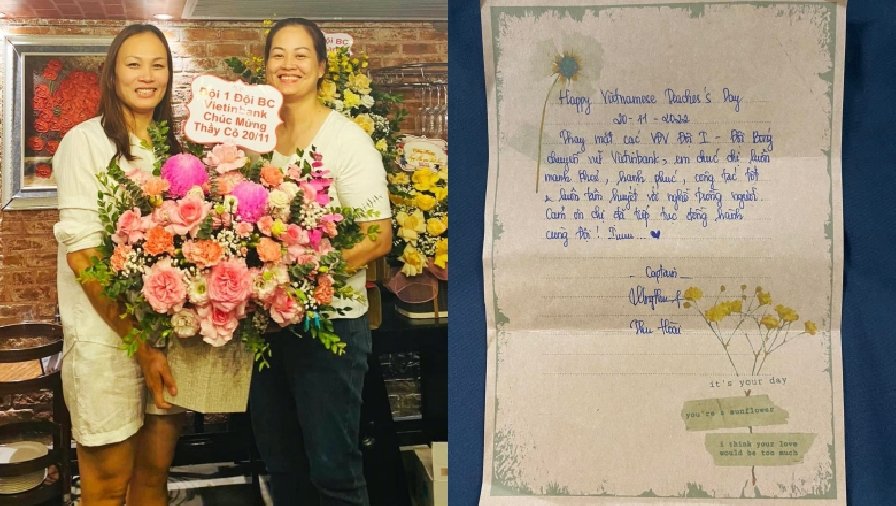 Đội 1 Đội BC
Vietinbank
Chúc Mừng
Thầy Cô 20/11
Đội BC
Happy Vietnamese Teacher's Day.
20-11-2022
Thay mặt các VĐV Đội I - Đội Bóng
chuyền nữ Vietinbank, em chúc chị luôn
mạnh khoẻ, hạnh phúc, công tác tốt
& luôn tâm huyết với nghề trồng người.
Cảm ơn chị đã tiếp tục đồng hành
cùng Đội!
Captain
Thu Hoài
it's your day
you're a sunflower
i think your love
would be too much